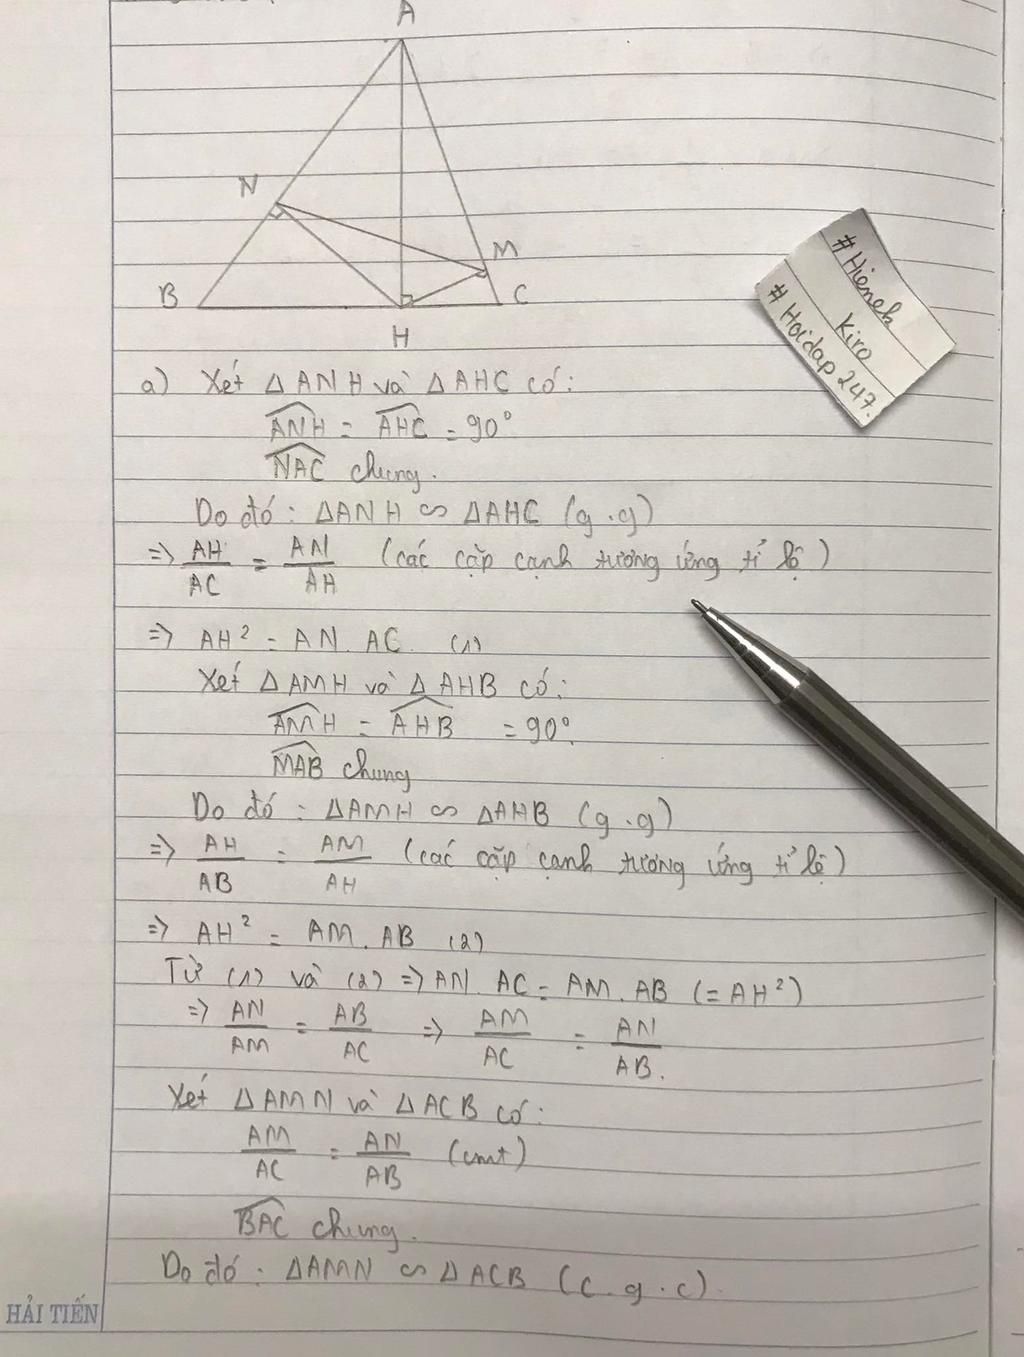 A
N
M
B
C
H
#Hienek
Kiro
#Hoidap247.
a) Xét ΔANH và ΔAHC có:
ANH = AHC = 90°
NAC chung.
Do đó: ΔANH ∽ ΔAHC (g.g)
=> AH/AC = AN/AH (các cặp cạnh tương ứng tỉ lệ)
=> AH² = AN.AC. (1)
Xét ΔAMH và ΔAHB có:
AMH = AHB = 90°.
MAB chung
Do đó: ΔAMH ∽ ΔAHB (g.g)
=> AH/AB = AM/AH (các cặp cạnh tương ứng tỉ lệ)
=> AH² = AM.AB (2)
Từ (1) và (2) => AN.AC = AM.AB (= AH²)
=> AN/AM = AB/AC => AM/AC = AN/AB.
Xét ΔAMN và ΔACB có:
AM/AC = AN/AB (cmt)
BAC chung.
Do đó: ΔAMN ∽ ΔACB (c.g.c).
HẢI TIẾN